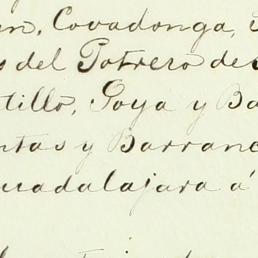 en, Covadonga,
s del Potrero de
tillo, Goya y Ba
ntas y Barranc
uadalajara á